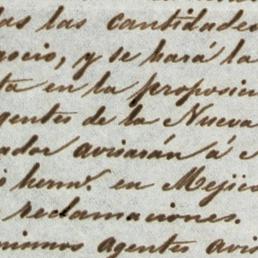 las las cantidades
gocio, y se hará la
ta en la proposici
gentes de la Nueva
ador avisarán á
hermº. en Mejico
reclamaciones.
mismos agentes avis